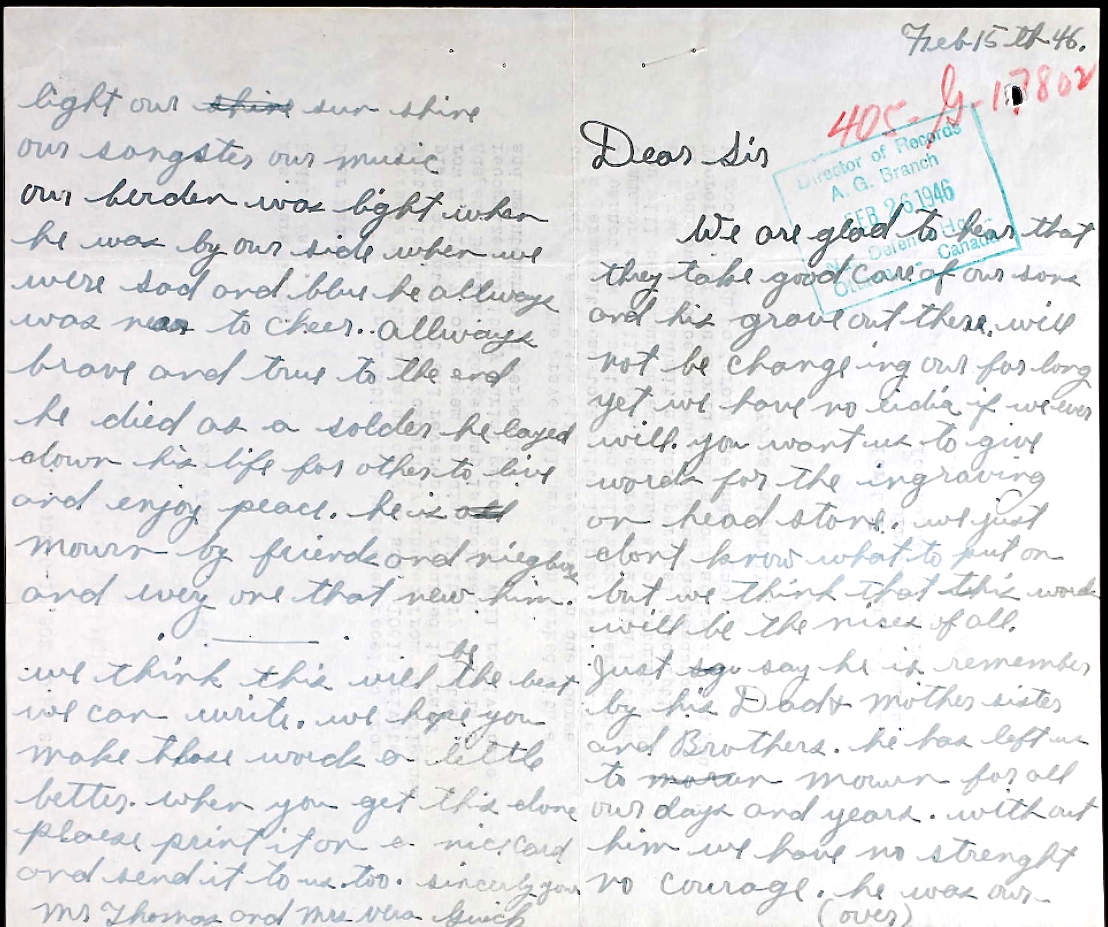 Feb 15th 46.
405-G-17802
Director of Records
A. G. Branch
FEB 26 1946
Nat. Defence Hdqrs
Canada
Dear Sir
We are glad to hear that
they take good care of our sons
and his grave out there. will
not be changeing our for long
yet we have no udia if we ever
will. you want us to give
words for the ingraving
on head stone. we just
dont know what to put on
but we think that this words
will be the nises of all.
Just say he is remember
by his Dad & mother sister
and Brothers. he has left us
to mourn for all
our days and years. without
him we have no strenght
no courage. he was our
(over)
light our shine sun shine
our songster our music
our burden was light when
he was by our side when we
were sad and blue he allways
was near to cheer.. allways
brave and true to the end
he died as a solder he layed
down his life for other to live
and enjoy peace. he is
mourn by friends and niegbors
and every one that new him.
we think this will be the best
we can write. we hope you
make those words a little
better. when you get this done
plaese print it on a nice card
and send it to us. too. sincerly your
Mr Thomas and Mrs Vera